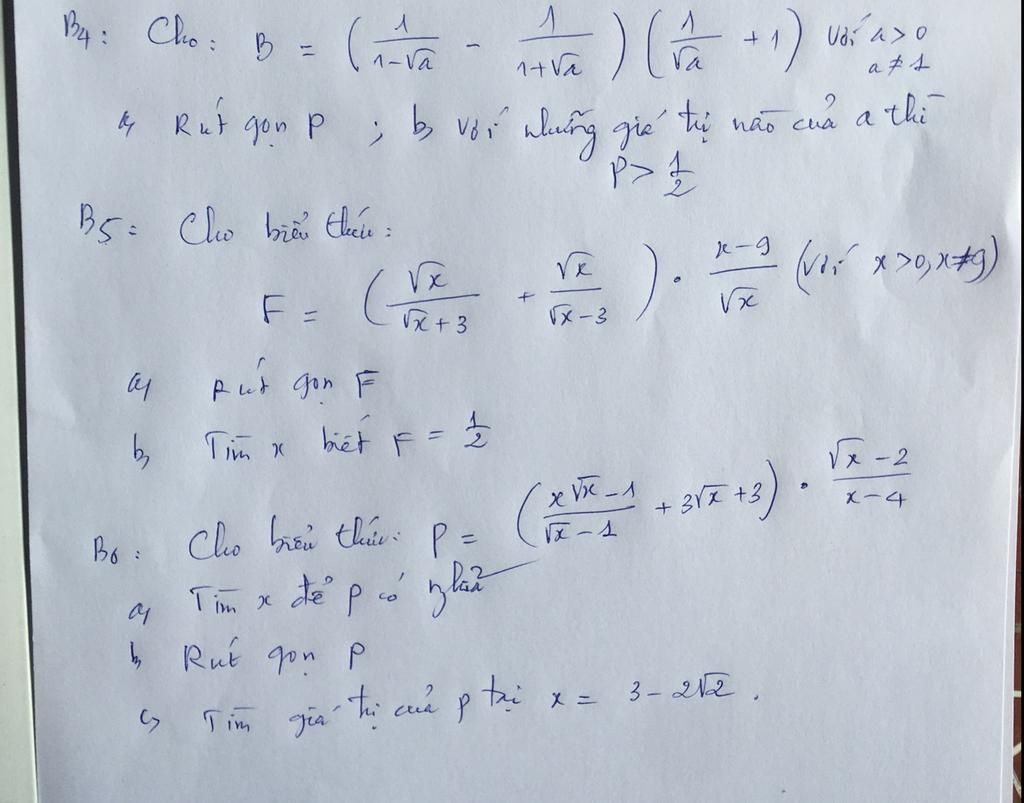 B4: Cho: B = (1/(1-√a) - 1/(1+√a)) (1/√a + 1) Với a > 0 a ≠ 1
a, Rút gọn P ; b, Với những giá trị nào của a thì
P > 1/2
B5: Cho biểu thức:
F = (√x/(√x+3) + √x/(√x-3)) . (x-9)/√x (với x > 0, x ≠ 9)
a, Rút gọn F
b, Tìm x biết F = 1/2
B6: Cho biểu thức: P = ((x√x - 1)/(√x - 1) + 3√x + 3) . (√x - 2)/(x - 4)
a, Tìm x để P có nghĩa
b, Rút gọn P
c, Tìm giá trị của P tại x = 3 - 2√2.